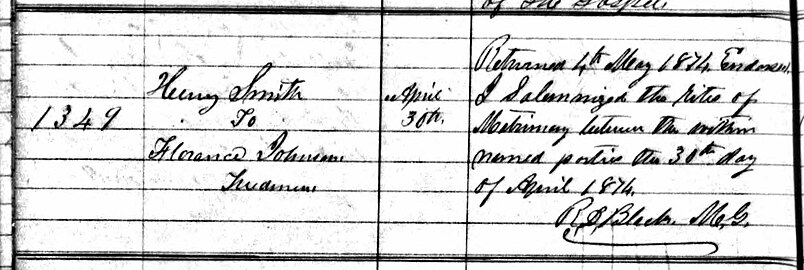 of The Gospel.
1349
Henry Smith
To
Florance Johnson
Freedmen
April
30th.
Returned 4th May 1874. Endorsed.
I Solemnized the rites of
Matrimony between the within
named parties the 30th day
of April 1874.
R. S. Black. M.G.